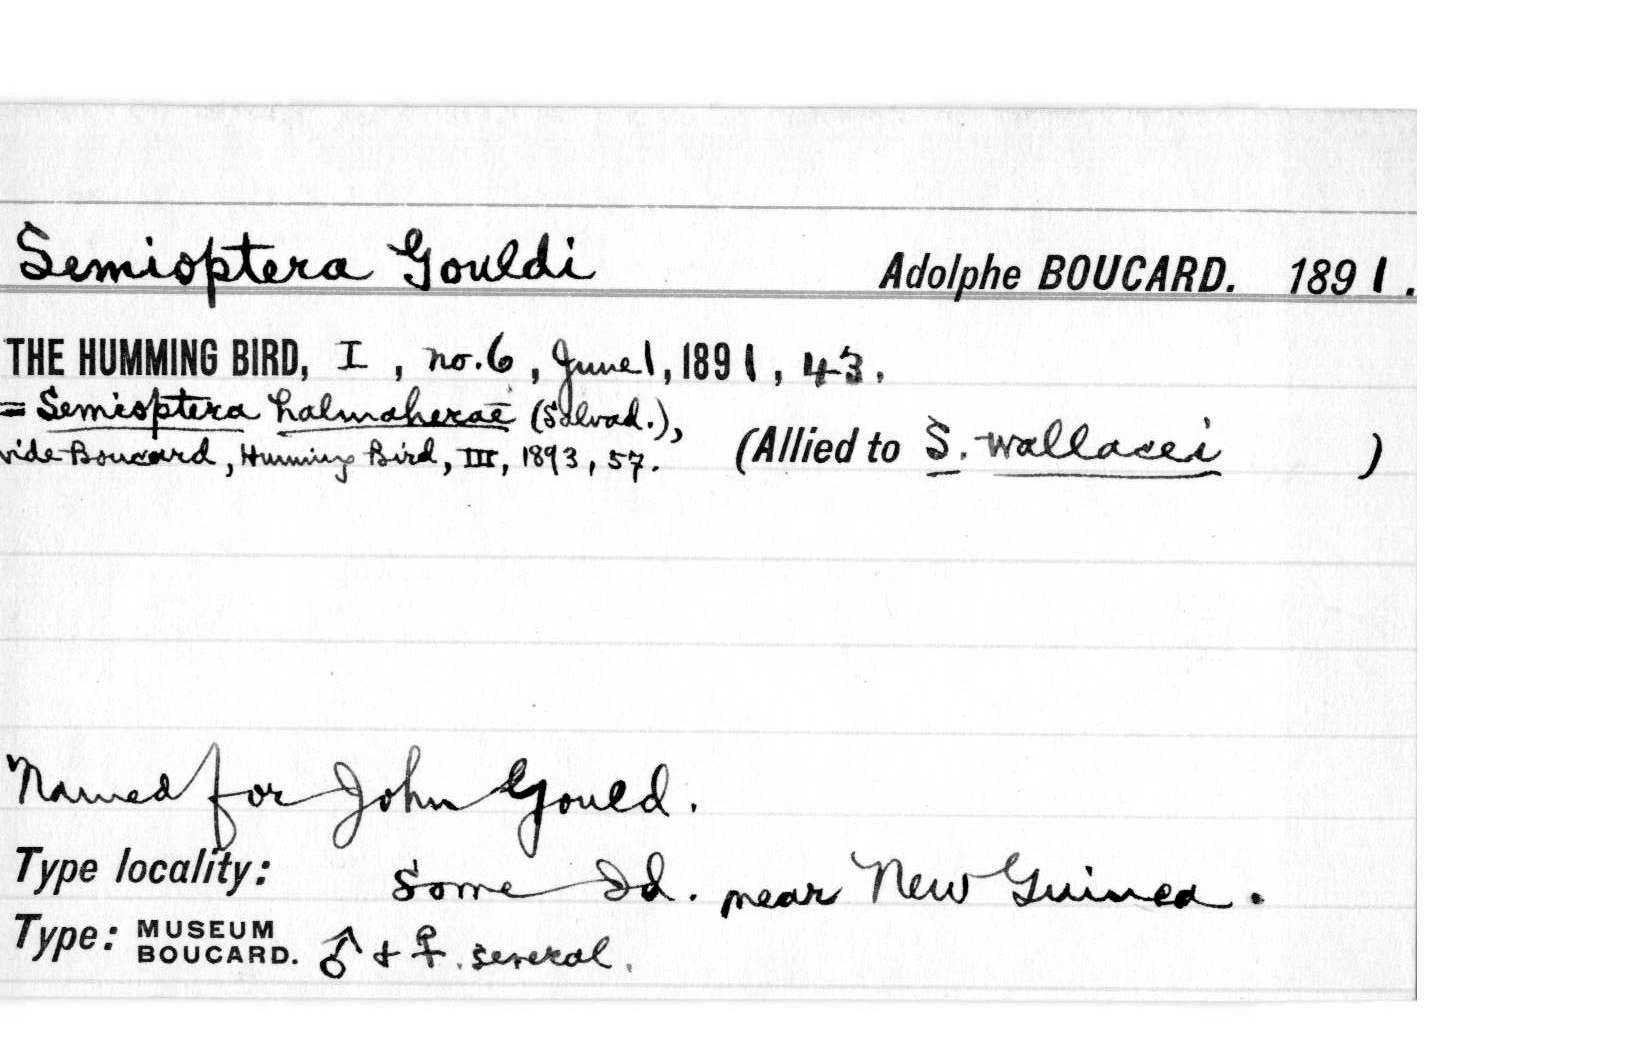 Semioptera Gouldi Adolphe BOUCARD. 1891.
THE HUMMING BIRD, I, no. 6, June 1, 1891, 43.
= Semioptera halmaherae (Salvad.),
vide Boucard, Humming Bird, III, 1893, 57. (Allied to S. wallacei )
Named for John Gould.
Type locality: Some Id. near New Guinea.
Type: MUSEUM BOUCARD. ♂ + ♀. several.